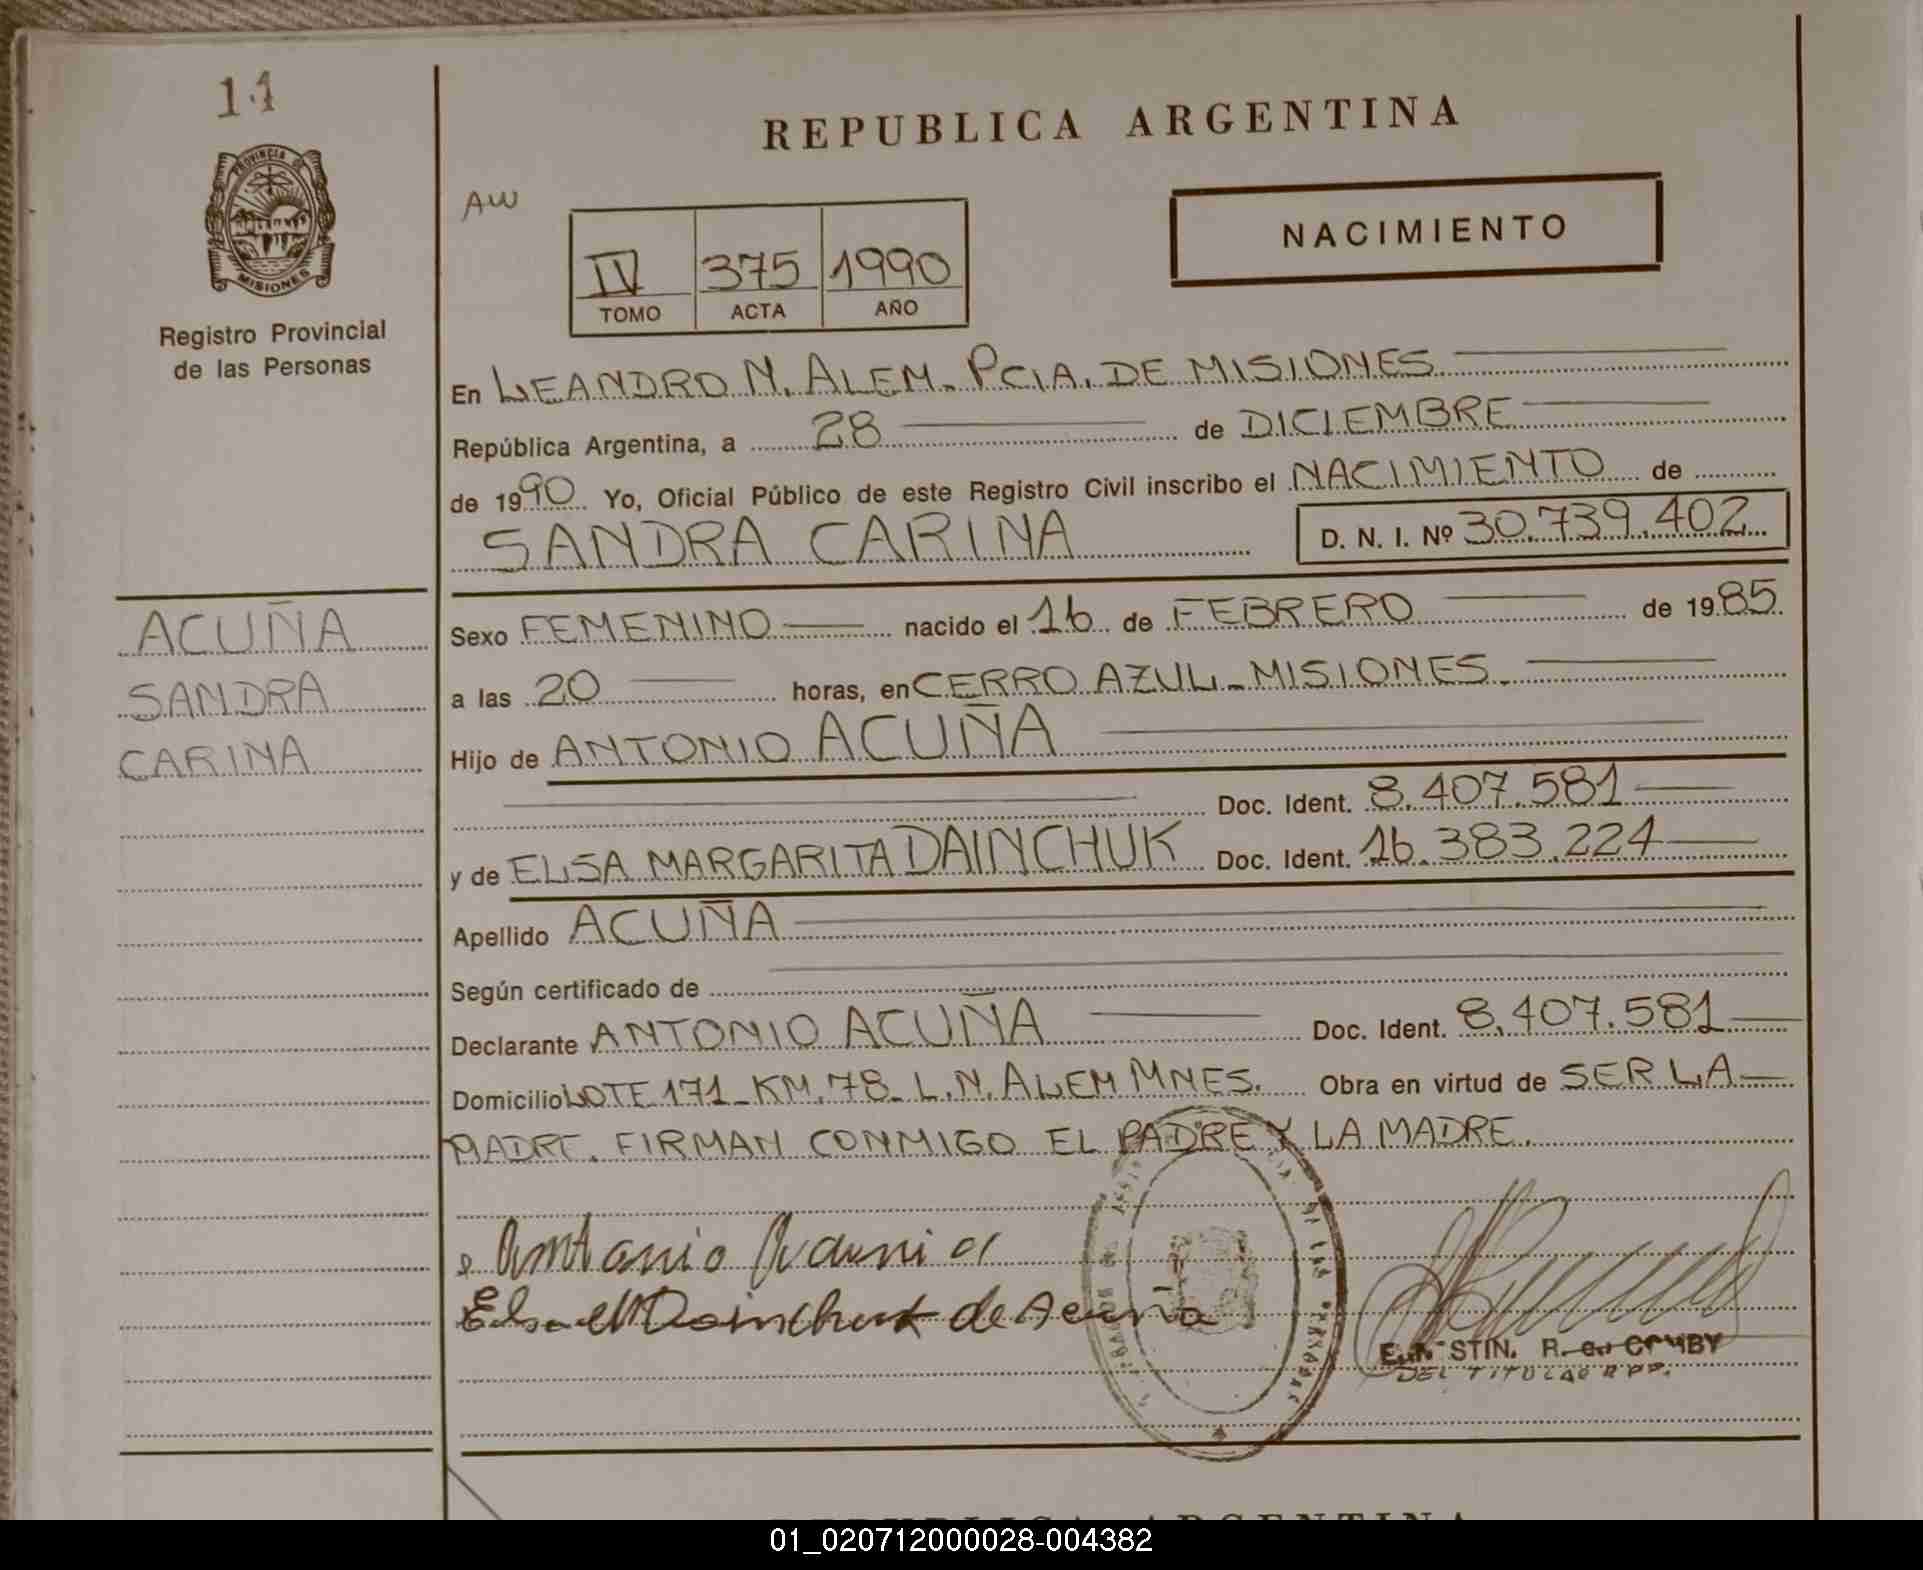 11
PROVINCIA DE
MISIONES
Registro Provincial
de las Personas
ACUÑA
SANDRA
CARINA
REPUBLICA ARGENTINA
AW
IV 375 1990
TOMO ACTA AÑO
NACIMIENTO
En LEANDRO N. ALEM. PCIA. DE MISIONES
República Argentina, a 28 de DICIEMBRE
de 1990 Yo, Oficial Público de este Registro Civil inscribo el NACIMIENTO de
SANDRA CARINA D. N. I. Nº 30.739.402
Sexo FEMENINO nacido el 16 de FEBRERO de 1985
a las 20 horas, en CERRO AZUL - MISIONES
Hijo de ANTONIO ACUÑA
Doc. Ident. 8.407.581
y de ELSA MARGARITA DAINCHUK Doc. Ident. 16.383.224
Apellido ACUÑA
Según certificado de
Declarante ANTONIO ACUÑA Doc. Ident. 8.407.581
Domicilio LOTE 171 - KM. 78 - L.N. ALEM MNES. Obra en virtud de SER LA
MADRE. FIRMAN CONMIGO EL PADRE Y LA MADRE.
Antonio Acuña
Elsa M Dainchuk de Acuña
DEL TITULAR
REPUBLICA ARGENTINA
01_020712000028-004382